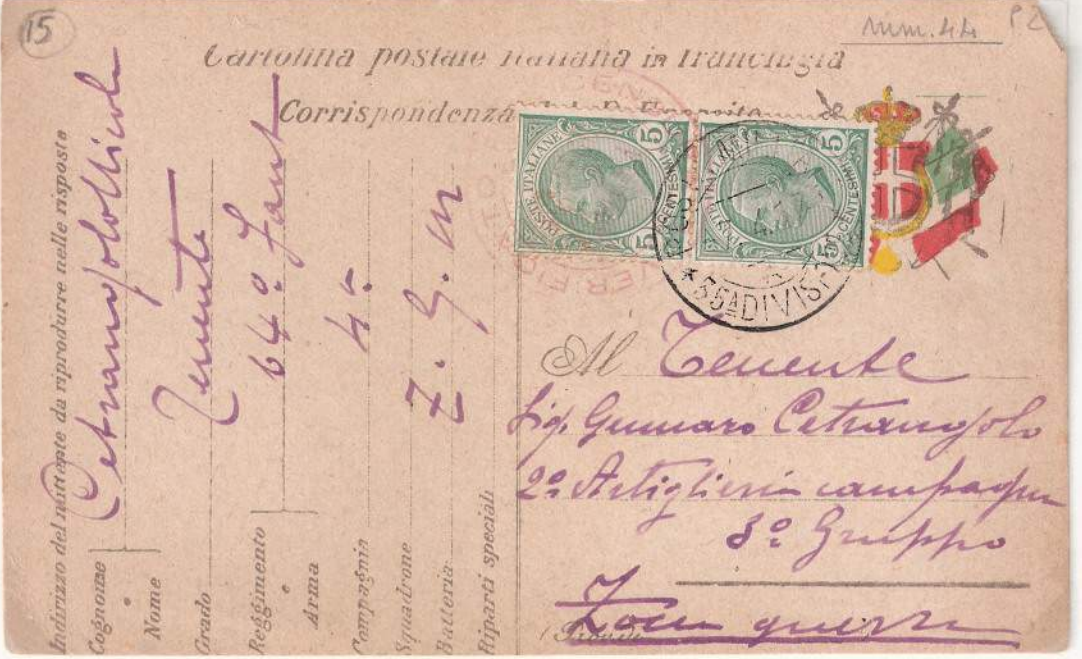 15
num. 44 P2
Cartolina postale italiana in franchigia
Corrispondenza
POSTE ITALIANE
5 CENTESIMI 5
POSTE ITALIANE
5 CENTESIMI 5
* 35A DIVIS
Indirizzo del mittente da riprodurre nelle risposte
Cognome e Nome Cetrangolo Nicola
Grado Tenente
Reggimento e Arma 64º Fant
Compagnia 4ª
Squadrone
Batteria Z. G. M
Riparti speciali
Al Tenente
Sig. Gennaro Cetrangolo
2º Artiglieria campagna
3º Gruppo
Zona guerra